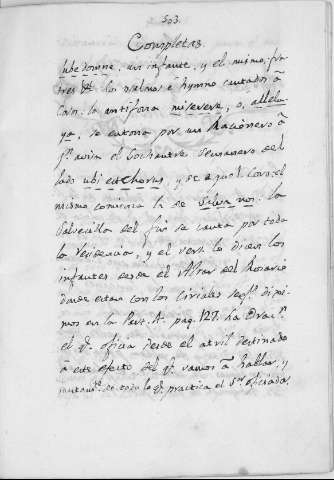 503.
Completas.
Jube Domne, un infante, y el mismo, fra
tres &a. los psalmos è hymno cantados â
Coro: la antifona miserere, o, allelu
ya, se entona por un Racionero â
qn. avisa el Sochantre Semanero del
lado ubi est Chorus, y de aquel Coro el
mismo comienza la de Salva nos: la
Salvecilla del fin se canta por todo
la Residencia, y el vers. lo dicen los
infantes desde el Altar del Rosario
donde estan con los Ciriales segn. diji
mos en la Part. A. pag. 127. La Oracn.
el qe. oficia desde el atril destinado
â este efecto del qe. vamos â hablar, y
en todo lo qe. practica el Sor. oficiador